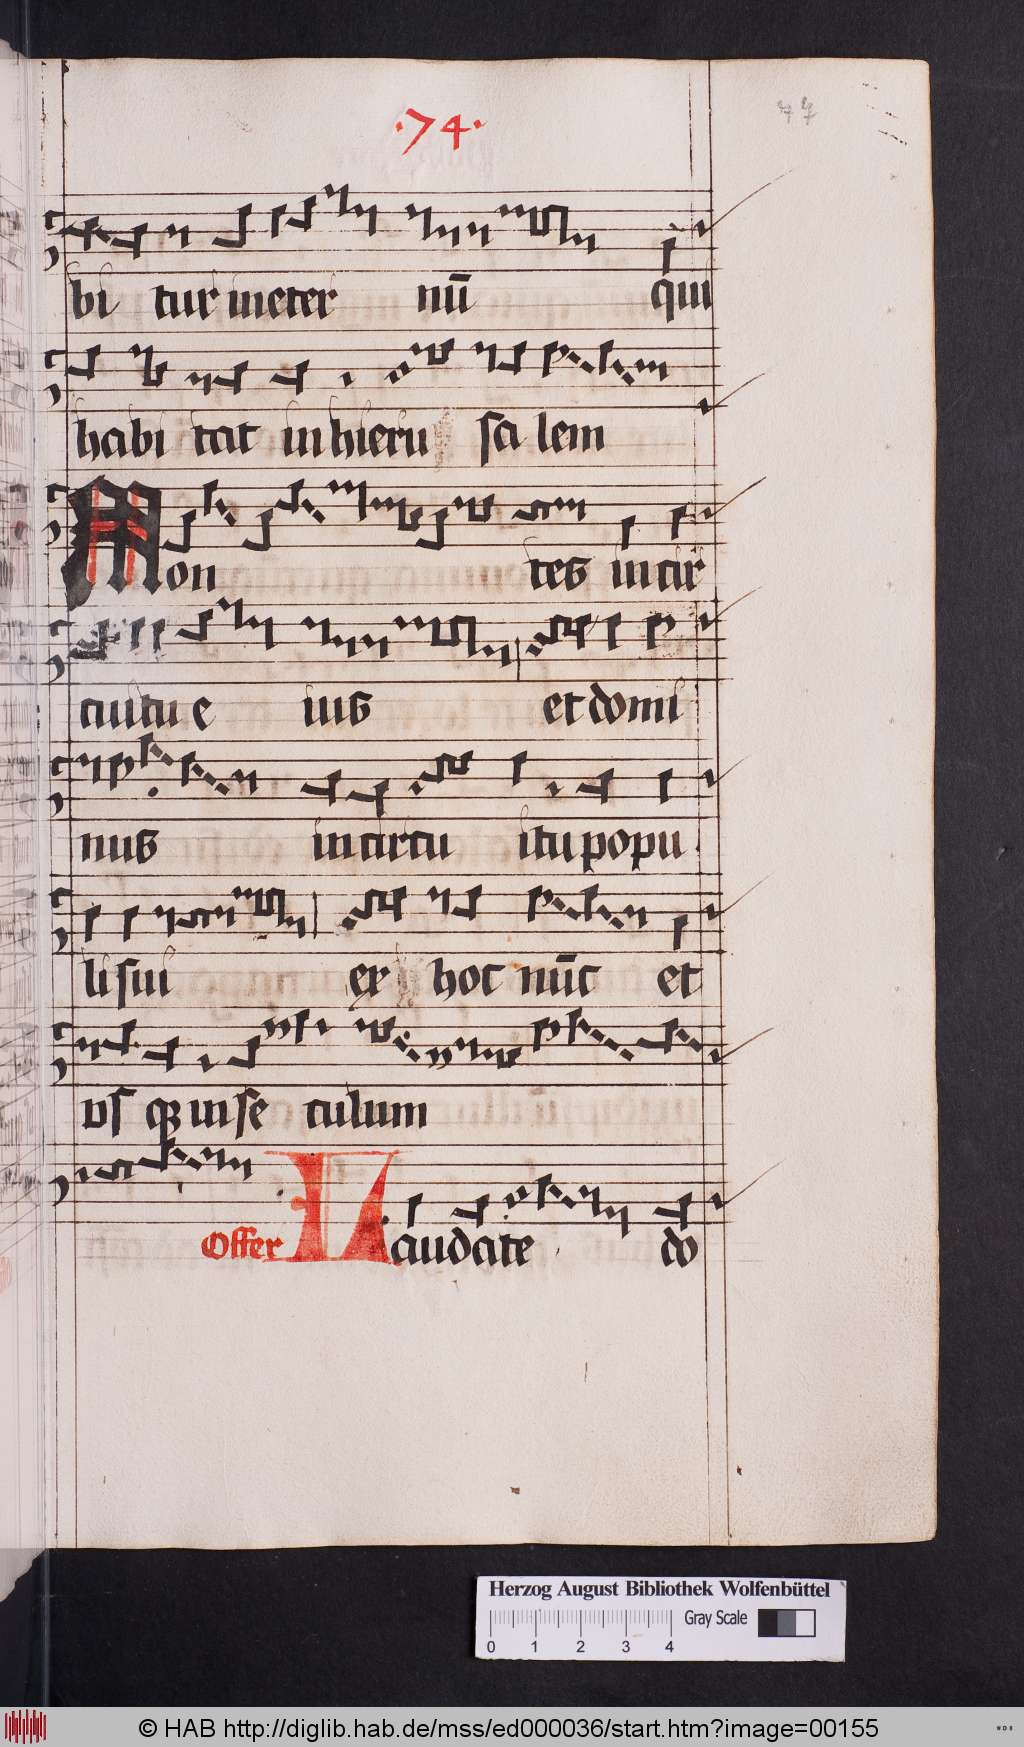 ·74·
77
bi tur ineter nū qui
habi tat inhieru sa lem
Mon tes in cir
cuitu e ius et domi
nus in circu itu popu
li sui ex hoc nūc et
vsqꝫ in se culum
Offer Laudate do
Herzog August Bibliothek Wolfenbüttel
Gray Scale
0 1 2 3 4
© HAB http://diglib.hab.de/mss/ed000036/start.htm?image=00155